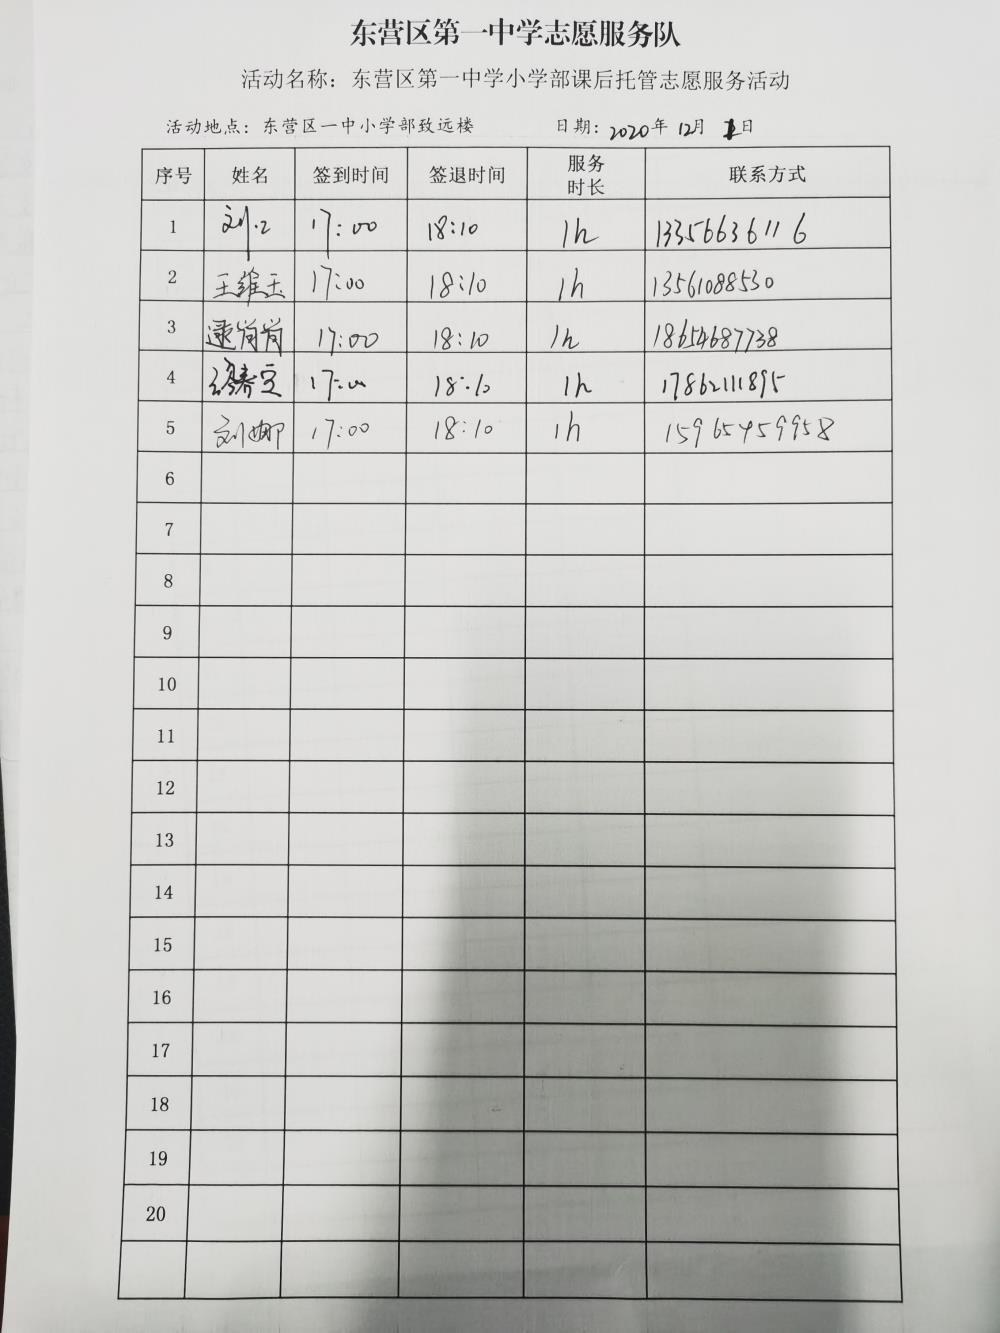 东营区第一中学志愿服务队
活动名称：东营区第一中学小学部课后托管志愿服务活动
活动地点：东营区一中小学部致远楼 日期：2020年 12月 日
序号 姓名 签到时间 签退时间 服务时长 联系方式
1 刘 17:00 18:10 1h 13356636116
2 王维玉 17:00 18:10 1h 13561088530
3 逯肖肖 17:00 18:10 1h 18654687738
4 17:00 18:10 1h 17862111895
5 刘娜 17:00 18:10 1h 15965459958
6
7
8
9
10
11
12
13
14
15
16
17
18
19
20